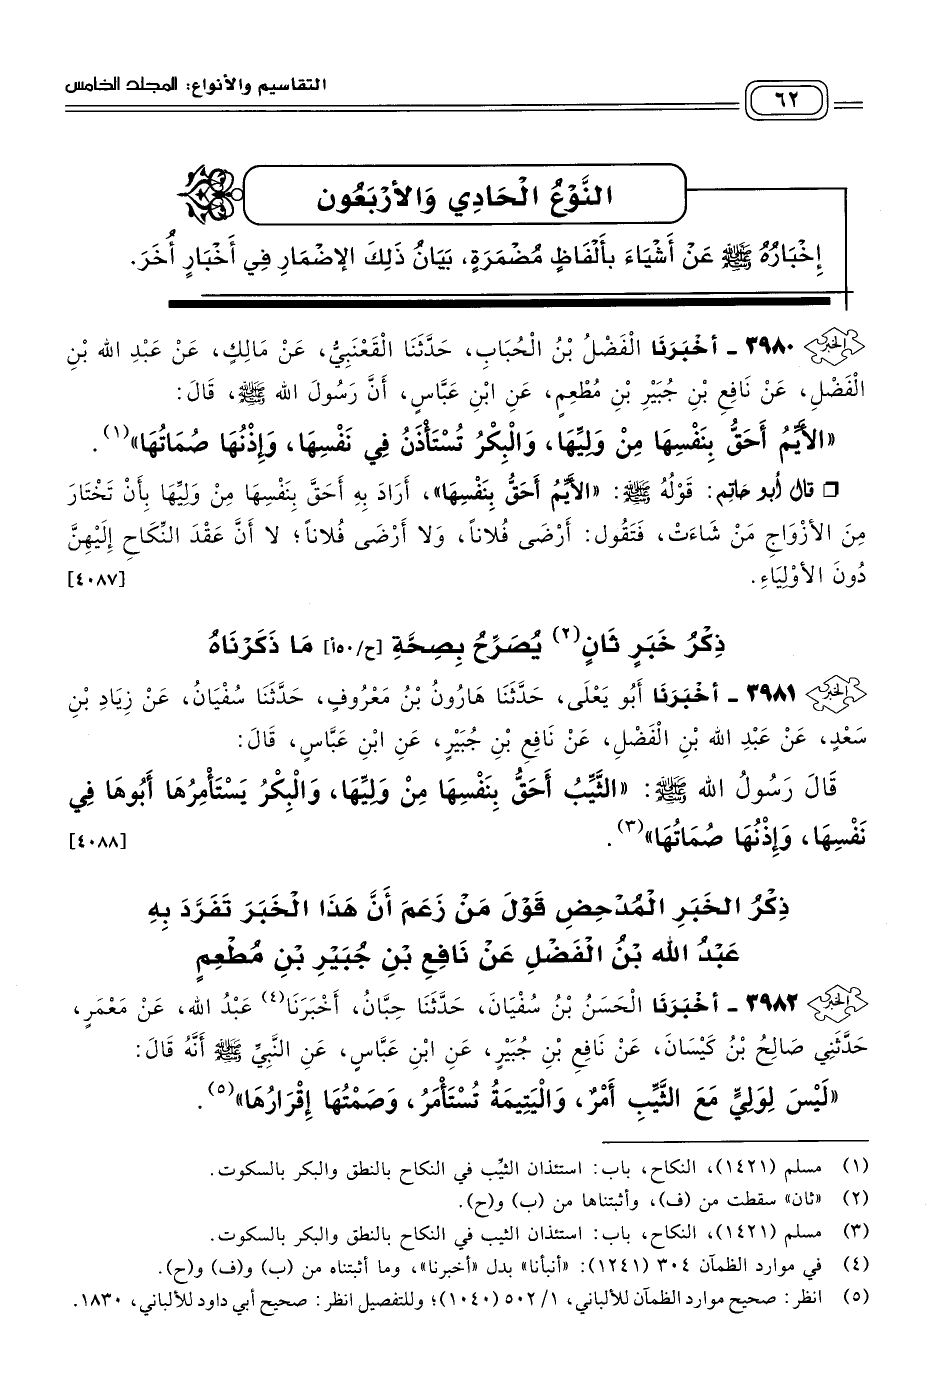 التقاسيم والأنواع: المجلد الخامس
٦٢
النَّوْعُ الْحَادِي وَالأَرْبَعُون
إِخْبَارُهُ ﷺ عَنْ أَشْيَاءَ بِأَلْفَاظٍ مُضْمَرَةٍ، بَيَانُ ذَلِكَ الإِضْمَارِ فِي أَخْبَارٍ أُخَرَ.
الخبر ٣٩٨٠ - أَخْبَرَنَا الْفَضْلُ بْنُ الْحُبَابِ، حَدَّثَنَا الْقَعْنَبِيُّ، عَنْ مَالِكٍ، عَنْ عَبْدِ الله بْنِ
الْفَضْلِ، عَنْ نَافِعِ بْنِ جُبَيْرِ بْنِ مُطْعِمٍ، عَنِ ابْنِ عَبَّاسٍ، أَنَّ رَسُولَ الله ﷺ، قَالَ:
«الأَيِّمُ أَحَقُّ بِنَفْسِهَا مِنْ وَلِيِّهَا، وَالْبِكْرُ تُسْتَأْذَنُ فِي نَفْسِهَا، وَإِذْنُهَا صُمَاتُهَا»(١).
❑ قال أبو حاتم: قَوْلُهُ ﷺ: «الأَيِّمُ أَحَقُّ بِنَفْسِهَا»، أَرَادَ بِهِ أَحَقُّ بِنَفْسِهَا مِنْ وَلِيِّهَا بِأَنْ تَخْتَارَ
مِنَ الأَزْوَاجِ مَنْ شَاءَتْ، فَتَقُول: أَرْضَى فُلاناً، وَلا أَرْضَى فُلاناً؛ لا أَنَّ عَقْدَ النِّكَاحِ إِلَيْهِنَّ
دُونَ الأَوْلِيَاءِ. [٤٠٨٧]
ذِكْرُ خَبَرٍ ثَانٍ(٢) يُصَرِّحُ بِصِحَّةِ [ح/٥٠أ] مَا ذَكَرْنَاهُ
الخبر ٣٩٨١ - أَخْبَرَنَا أَبُو يَعْلَى، حَدَّثَنَا هَارُونُ بْنُ مَعْرُوفٍ، حَدَّثَنَا سُفْيَانُ، عَنْ زِيَادِ بْنِ
سَعْدٍ، عَنْ عَبْدِ الله بْنِ الْفَضْلِ، عَنْ نَافِعِ بْنِ جُبَيْرٍ، عَنِ ابْنِ عَبَّاسٍ، قَالَ:
قَالَ رَسُولُ الله ﷺ: «الثَّيِّبُ أَحَقُّ بِنَفْسِهَا مِنْ وَلِيِّهَا، وَالْبِكْرُ يَسْتَأْمِرُهَا أَبُوهَا فِي
نَفْسِهَا، وَإِذْنُهَا صُمَاتُهَا»(٣). [٤٠٨٨]
ذِكْرُ الخَبَرِ الْمُدْحِضِ قَوْلَ مَنْ زَعَمَ أَنَّ هَذَا الْخَبَرَ تَفَرَّدَ بِهِ
عَبْدُ الله بْنُ الْفَضْلِ عَنْ نَافِعِ بْنِ جُبَيْرِ بْنِ مُطْعِمٍ
الخبر ٣٩٨٢ - أَخْبَرَنَا الْحَسَنُ بْنُ سُفْيَانَ، حَدَّثَنَا حِبَّانُ، أَخْبَرَنَا(٤) عَبْدُ الله، عَنْ مَعْمَرٍ،
حَدَّثَنِي صَالِحُ بْنُ كَيْسَانَ، عَنْ نَافِعِ بْنِ جُبَيْرٍ، عَنِ ابْنِ عَبَّاسٍ، عَنِ النَّبِيِّ ﷺ أَنَّهُ قَالَ:
«لَيْسَ لِوَلِيٍّ مَعَ الثَّيِّبِ أَمْرٌ، وَالْيَتِيمَةُ تُسْتَأْمَرُ، وَصَمْتُهَا إِقْرَارُهَا»(٥).
(١) مسلم (١٤٢١)، النكاح، باب: استئذان الثيِّب في النكاح بالنطق والبكر بالسكوت.
(٢) «ثان» سقطت من (ف)، وأثبتناها من (ب) و(ح).
(٣) مسلم (١٤٢١)، النكاح، باب: استئذان الثيب في النكاح بالنطق والبكر بالسكوت.
(٤) في موارد الظمآن ٣٠٤ (١٢٤١): «أنبأنا» بدل «أخبرنا»، وما أثبتناه من (ب) و(ف) و(ح).
(٥) انظر: صحيح موارد الظمآن للألباني، ١/ ٥٠٢ (١٠٤٠)؛ وللتفصيل انظر: صحيح أبي داود للألباني، ١٨٣٠.